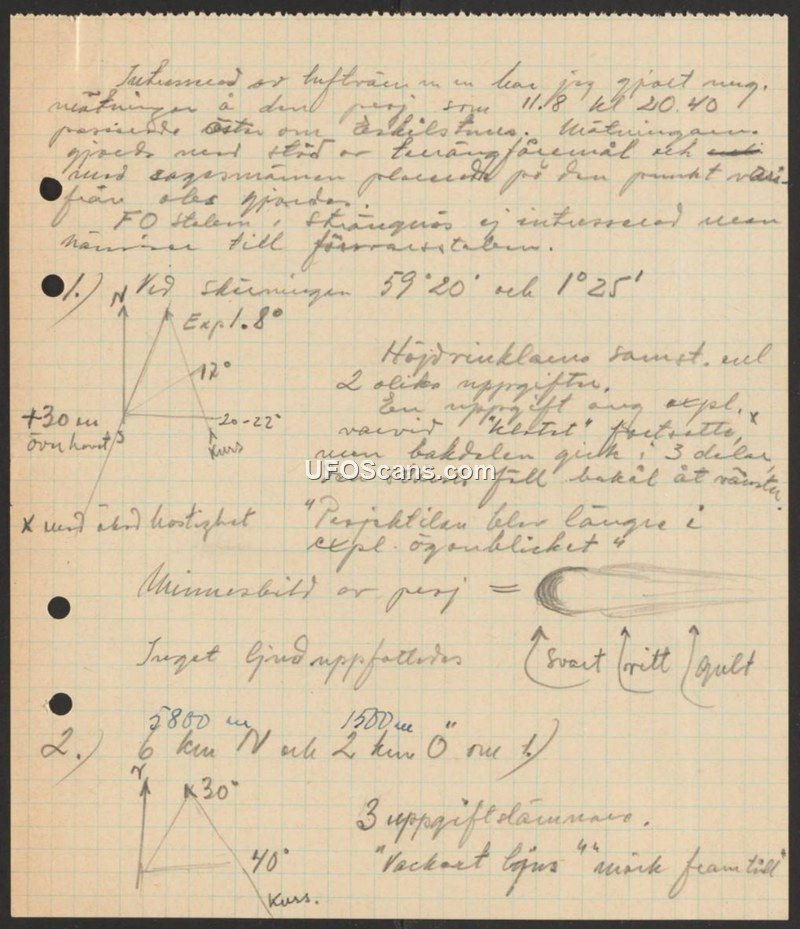 Intresserad av luftvärnen har jag gjort någ.
mätningar å den proj som 11.8 kl 20.40
passerade öster om Eskilstuna. Mätningarna
gjorda med stöd av terrängföremål och
med sagesmännen placerade på den punkt vari-
från obs gjordes.
FO staben i Strängnäs ej intresserad men
hänvisar till försvarsstaben.
1.) Vid skärningen 59°20' och 1°25'
N
Exp 1. 8°
17°
20-22°
Kurs
+30 m
över havet
S
Höjdvinklarna samst. enl
2 olika uppgifter.
En uppgift ang expl. x
varvid "klotet" fortsatte,
men bakdelen gick i 3 delar,
föll bakåt åt vänster.
x med ökad hastighet
"Projektilen blev längre i
expl. ögonblicket"
Minnesbild av proj =
Inget ljud uppfattades
svart vitt gult
5800 m 1500 m
2.) 6 km N och 2 km Ö om 1.)
30°
40°
Kurs.
3 uppgiftslämnare.
"Vackert ljus" "mörk framtill"
UFOScans.com